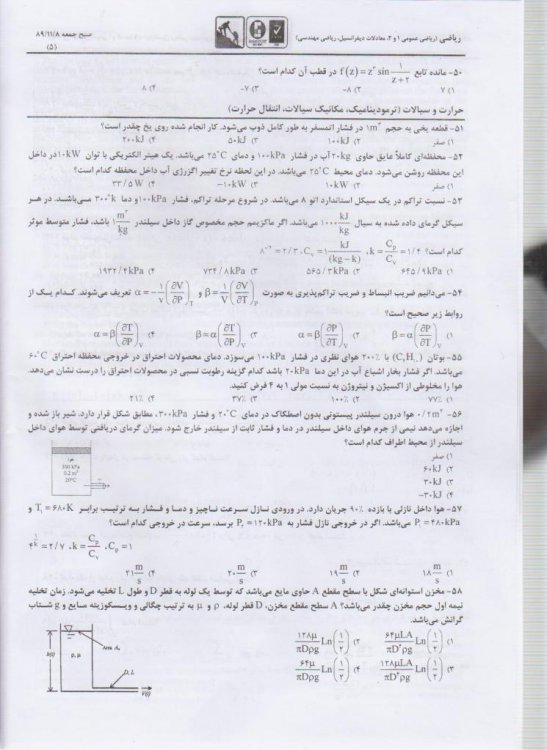 ریاضی (ریاضی عمومی ۱ و ۲، معادلات دیفرانسیل، ریاضی مهندسی)
صبح جمعه ۸۹/۱۱/۸
(۵)
۵۰- مانده تابع f(z) = z² sin 1/(z+۲) در قطب آن کدام است؟
۱) ۷ ۲) ۸- ۳) ۷- ۴) ۸
حرارت و سیالات (ترمودینامیک، مکانیک سیالات، انتقال حرارت)
۵۱- قطعه یخی به حجم ۱m³ در فشار اتمسفر به طور کامل ذوب می‌شود. کار انجام شده روی یخ چقدر است؟
۱) صفر ۲) ۱۰۰kJ ۳) ۵۰kJ ۴) ۲۰۰kJ
۵۲- محفظه‌ای کاملاً عایق حاوی ۲۰kg آب در فشار ۱۰۰kPa و دمای ۲۵°C می‌باشد. یک هیتر الکتریکی با توان ۱۰kW در داخل
این محفظه روشن می‌شود. دمای محیط ۲۵°C می‌باشد. در این لحظه نرخ تغییر اگزرژی آب داخل محفظه کدام است؟
۱) صفر ۲) ۱۰kW ۳) -۱۰kW ۴) ۳۳/۵W
۵۳- نسبت تراکم در یک سیکل استاندارد اتو ۸ می‌باشد. در شروع مرحله تراکم، فشار ۱۰۰kPa و دما ۳۰۰°k می‌باشد. در هر
سیکل گرمای داده شده به سیال ۱۰۰۰ kJ/kg می‌باشد. اگر ماکزیمم حجم مخصوص گاز داخل سیلندر ۱ m³/kg باشد، فشار متوسط موثر
کدام است؟ k = Cp/Cv = ۱/۴ ، Cv = ۱ kJ/(kg-k) ، ۸^۰/۴ = ۲/۳
۱) ۶۴۵/۹kPa ۲) ۵۶۵/۳kPa ۳) ۷۳۴/۸kPa ۴) ۱۹۳۲/۴kPa
۵۴- می‌دانیم ضریب انبساط و ضریب تراکم‌پذیری به صورت β = 1/V (∂V/∂T)P و α = -1/V (∂V/∂P)T تعریف می‌شوند. کدام یک از
روابط زیر صحیح است؟
۱) β = α(∂P/∂T)V ۲) α = β(∂P/∂T)V ۳) β = α(∂T/∂P)V ۴) α = β(∂T/∂P)V
۵۵- بوتان (C₄H₁₀) با ۲۰۰٪ هوای نظری در فشار ۱۰۰kPa می‌سوزد. دمای محصولات احتراق در خروجی محفظه احتراق ۶۰°C
می‌باشد. اگر فشار بخار اشباع آب در این دما ۲۰kPa باشد کدام گزینه رطوبت نسبی در محصولات احتراق را درست نشان می‌دهد.
هوا را مخلوطی از اکسیژن و نیتروژن به نسبت مولی ۱ به ۴ فرض کنید.
۱) ۷۷٪ ۲) ۱۰۰٪ ۳) ۳۷٪ ۴) ۲۱٪
۵۶- ۰/۲m³ هوا درون سیلندر پیستونی بدون اصطکاک در دمای ۲۰°C و فشار ۳۰۰kPa، مطابق شکل قرار دارد. شیر باز شده و
اجازه می‌دهد نیمی از جرم هوای داخل سیلندر در دما و فشار ثابت از سیلندر خارج شود. میزان گرمای دریافتی توسط هوای داخل
سیلندر از محیط اطراف کدام است؟
۱) صفر
۲) ۶۰kJ
۳) ۳۰kJ
۴) -۳۰kJ
هوا
300 kPa
0.2 m³
20°C
۵۷- هوا داخل نازلی با بازده ۹۰٪ جریان دارد. در ورودی نازل سرعت ناچیز و دما و فشار به ترتیب برابر T₁ = ۶۸۰K و
P₁ = ۴۸۰kPa می‌باشد. اگر در خروجی نازل فشار به P₂ = ۱۲۰kPa برسد، سرعت در خروجی کدام است؟
Cp = ۱ ، k = Cp/Cv ، ۴^(1/k) = ۲/۷
۱) ۱۸ m/s ۲) ۱۹ m/s ۳) ۲۰ m/s ۴) ۲۱ m/s
۵۸- مخزن استوانه‌ای شکل با سطح مقطع A حاوی مایع می‌باشد که توسط یک لوله به قطر D و طول L تخلیه می‌شود. زمان تخلیه
نیمه اول حجم مخزن چقدر می‌باشد؟ A سطح مقطع مخزن، D قطر لوله، ρ و μ به ترتیب چگالی و ویسکوزیته مایع و g شتاب
گرانش می‌باشد.
۱) ۶۴μLA/πD⁴ρg Ln(۱/۲) ۲) ۱۲۸μ/πDρg Ln(۱/۲)
۳) ۱۲۸μLA/πD⁴ρg Ln(۱/۲) ۴) ۶۴μ/πDρg Ln(۱/۲)
h(t)
ρ, μ
D, L
V(t)